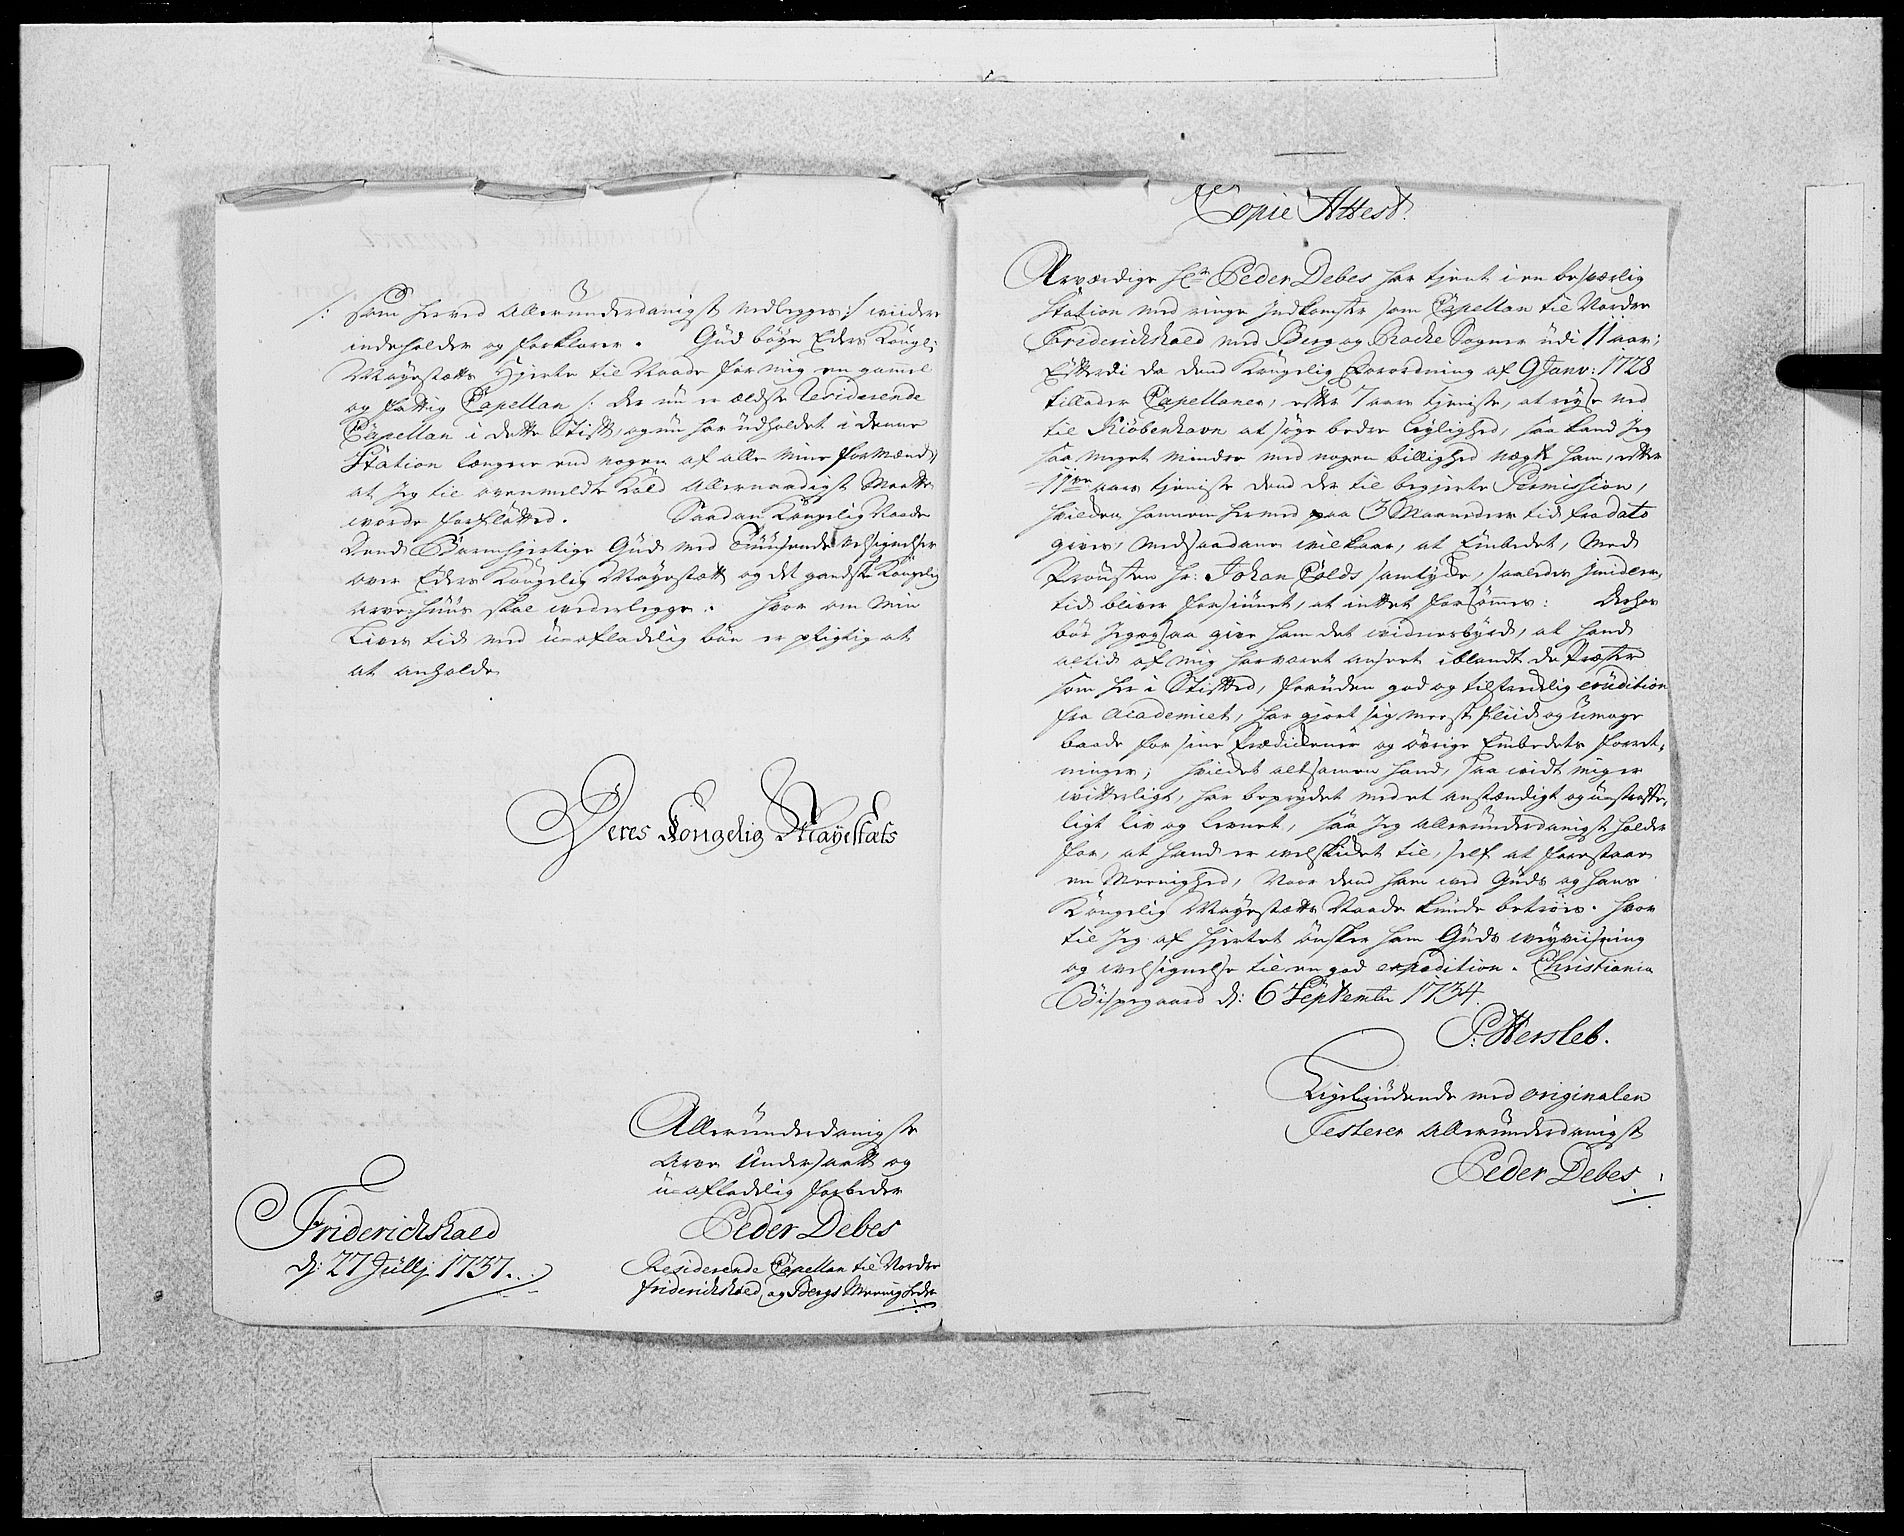 /: som herved allerunderdanigst vedlegges :/ viidere
indeholder og forklarer. Gud böye Eders Kongl:
Mayestætts Hjerte til Naade for mig en gamel
og fattig Capellan /: der nu er ældste Residerende
Capellan i dette Stift, og nu har udholdet i denne
Station længere end nogen af alle mine Formænd :/
at jeg til ovenmeldte Kald allernaadigst maatte
worde forflötted. Saadan Kongelig Naade
dend Barmhjertige Gud med Tuusende velsignelser
over Eders Kongelig Mayestætt og det gandske Kongelig
arve-Huus skal vederlegge. Hvor om min
Lives tid med u-afladelig bön er pligtig at
at anholde
Deres Kongelig Mayestæts
Allerunderdanigste
arve undersaatt og
u-afladelig forbeder
Peder Debes
Residerende Capellan til Nordre
Friderichshald og Bergs Meenigheder
Friderichshald
d: 27 Julij 1737.
Copie Attest.
Ærværdige Hr. Peder Debes har tjent i en besværlig
Station med ringe Indkomster som Capellan til Nordre
Friderichshald med Berg og Rocke Sogner udi 11 aar;
Efterdi da dend Kongelig Forordning af 9 Janv: 1728
tillader Capellaner, efter 7 aars tjeniste, at reyse ned
til Kiöbenhavn at söge bedre leylighed, saa kand jeg
saa meget mindre med nogen billighed nægte ham, efter
11 aars tjeniste dend der til begjerte Permission,
hvilken hannem hermed paa 3 Maaneders tid fra dato
gives, med saadane vilkaar, at Embedet, med
Provsten Hr: Johan Colds samtyke, saaledes imidler-
tid bliver forsiunet, at intet forsömmes: Derhos
bör jeg ogsaa give ham det vidnesbyrd, at hand
altid af mig har været anseet iblandt de Præster
som her i Stifted, foruden god og tilstrekelig erudition
fra Academiet, har gjort sig meest fliid og umage
baade for sine Prædickener og övrige Embedets forret-
ninger; hvilket altsamen hand, saa vidt mig er
vitterligt, har beprydet med et anstændigt og ustraffe-
ligt Liv og Levnet, saa jeg allerunderdanigst holder
for, at hand er velskicket til, self at forestaae
en Meenighed, naar dend ham ved Guds og hans
Kongelig Mayestætts Naade kunde betroes. Hvor
til jeg af hjertet önsker ham Guds veyviisning
og velsignelse til en god expedition. Christiania
Bispegaard d: 6 September 1734.
P: Hersleb.
Ligelydende med originalen
Testerer allerunderdanigst
Peder Debes